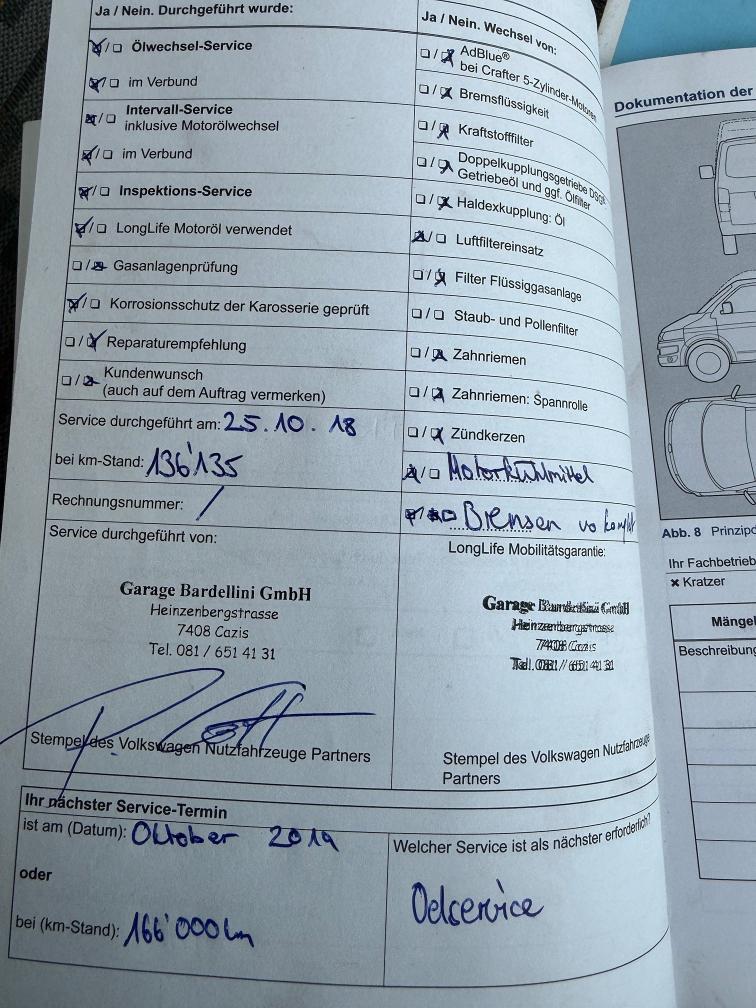 Ja / Nein. Durchgeführt wurde:
Ölwechsel-Service
im Verbund
Intervall-Service
inklusive Motorölwechsel
im Verbund
Inspektions-Service
LongLife Motoröl verwendet
Gasanlagenprüfung
Korrosionsschutz der Karosserie geprüft
Reparaturempfehlung
Kundenwunsch
(auch auf dem Auftrag vermerken)
Service durchgeführt am: 25.10.18
bei km-Stand: 136'135
Rechnungsnummer: /
Service durchgeführt von:
Garage Bardellini GmbH
Heinzenbergstrasse
7408 Cazis
Tel. 081 / 651 41 31
Stempel des Volkswagen Nutzfahrzeuge Partners
Ja / Nein. Wechsel von:
AdBlue®
bei Crafter 5-Zylinder-Motoren
Bremsflüssigkeit
Kraftstofffilter
Doppelkupplungsgetriebe DSG®:
Getriebeöl und ggf. Ölfilter
Haldexkupplung: Öl
Luftfiltereinsatz
Filter Flüssiggasanlage
Staub- und Pollenfilter
Zahnriemen
Zahnriemen: Spannrolle
Zündkerzen
Motorkühlmittel
Bremsen vo
LongLife Mobilitätsgarantie:
Garage Bardellini GmbH
Heinzenbergstrasse
7408 Cazis
Tel. 081 / 651 41 31
Stempel des Volkswagen Nutzfahrzeuge
Partners
Ihr nächster Service-Termin
ist am (Datum): Oktober 2019
oder
bei (km-Stand): 166'000 km
Welcher Service ist als nächster erforderlich?
Oelservice
Dokumentation der
Abb. 8 Prinzipd
Ihr Fachbetrieb
× Kratzer
Mängel
Beschreibung